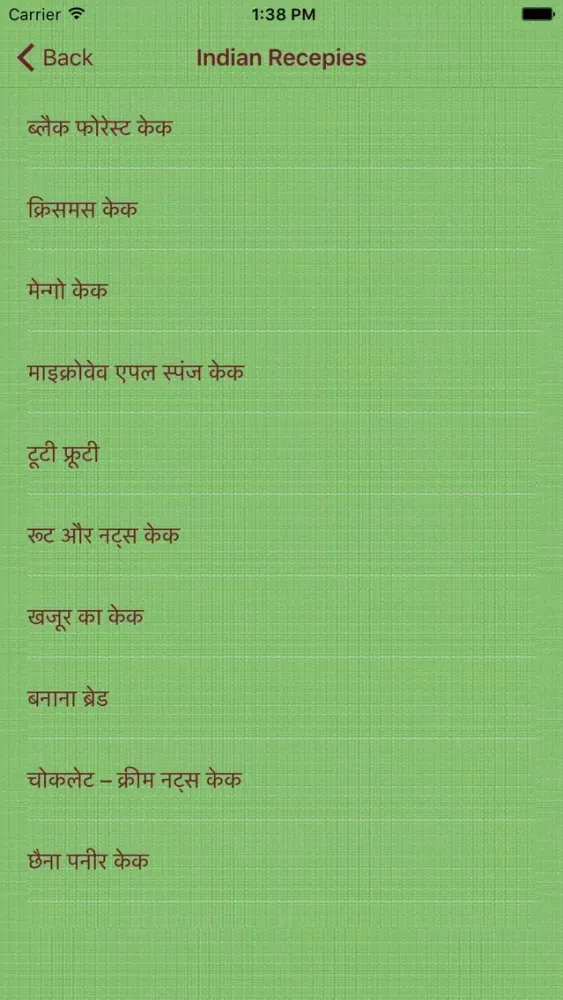 Carrier 1:38 PM
Back Indian Recepies
ब्लैक फोरेस्ट केक
क्रिसमस केक
मेन्गो केक
माइक्रोवेव एपल स्पंज केक
टूटी फ्रूटी
रूट और नट्स केक
खजूर का केक
बनाना ब्रेड
चोकलेट – क्रीम नट्स केक
छैना पनीर केक